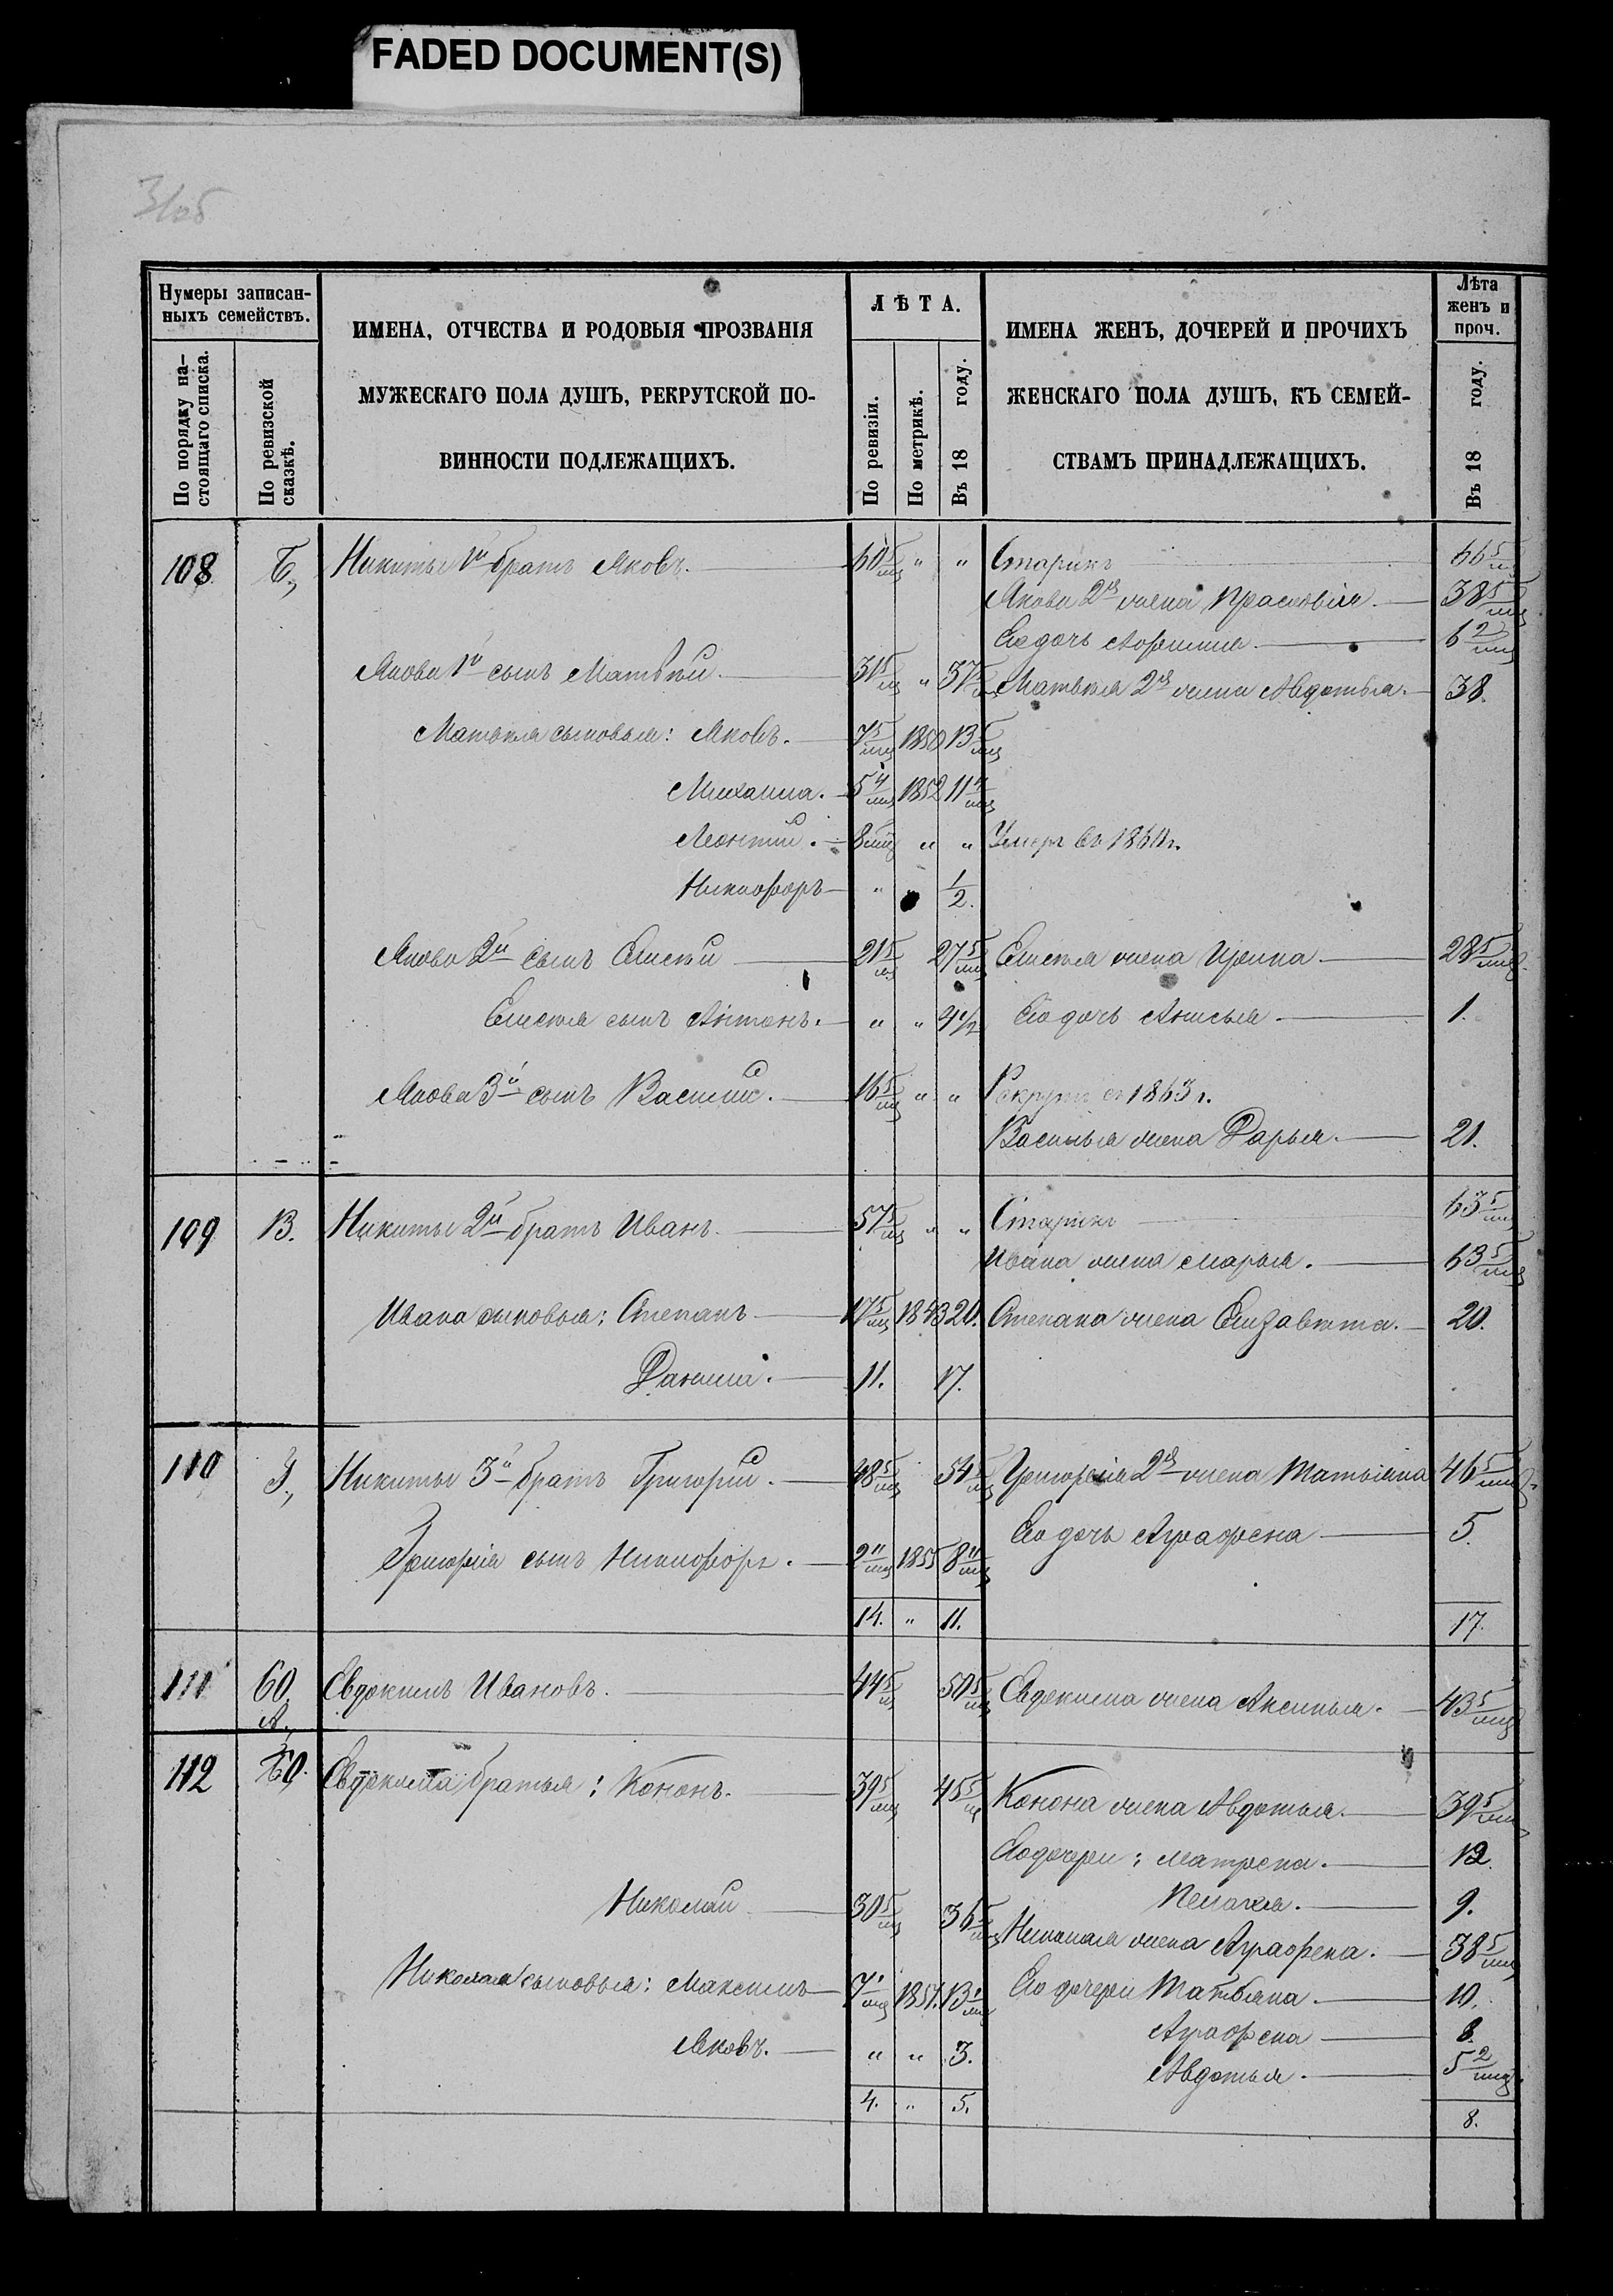 FADED DOCUMENT(S)
31об
Нумеры записан-
ныхъ семействъ.
По порядку на-
стоящаго списка.
По ревизской
сказкѣ.
ИМЕНА, ОТЧЕСТВА И РОДОВЫЯ ПРОЗВАНІЯ
МУЖЕСКАГО ПОЛА ДУШЪ, РЕКРУТСКОЙ ПО-
ВИННОСТИ ПОДЛЕЖАЩИХЪ.
ЛѢТА.
По ревизіи.
По метрикѣ.
Въ 18 году.
ИМЕНА ЖЕНЪ, ДОЧЕРЕЙ И ПРОЧИХЪ
ЖЕНСКАГО ПОЛА ДУШЪ, КЪ СЕМЕЙ-
СТВАМЪ ПРИНАДЛЕЖАЩИХЪ.
Лѣта
женъ и
проч.
Въ 18 году.
108 Б., Никиты 1й братъ Яковъ. 60 5/мц " " Старикъ 66 5/мц
Якова 2я жена Прасковія. 38 5/мц
Ея дочь 6 2/мц
Якова 1й сынъ Матвѣй. 31 5/мц " 37 5/мц Матвѣя 2я жена Авдотья. 38.
Матвѣя сыновья: Яковъ. 7 5/мц 1850 13 5/мц
Михаила. 5 4/мц 1852 11 4/мц
Леонтій. 8 мц " " Умеръ въ 1860 г.
Никифоръ " " 1/2.
Якова 2й сынъ Елисѣй 21 5/мц 27 5/мц Елисѣя жена Ирина 28 5/мц
Елисѣя сынъ Антонъ. " " 4 1/2 Его дочь Анисья 1.
Якова 3й сынъ Василій. 16 5/мц " " Рекрутъ съ 1863 г.
Василья жена Дарья. 21.
109 В. Никиты 2й братъ Иванъ. 57 5/мц " " Старикъ 63 5/мц
Ивана жена Марья. 63 5/мц
Ивана сыновья: Степанъ 17 5/мц 1843 20. Степана жена Елизавета. 20.
Данила. 11. 17.
110 Г., Никиты 3й братъ Григорій. 48 5/мц 54 5/мц Григорія 2я жена Татьяна 46 5/мц
Его дочь Аграфена 5.
Григорія сынъ Никифоръ. 2 11/мц 1855 8 11/мц
14. " 11. 17.
111 60. А., Евдокимъ Ивановъ. 44 5/мц 50 5/мц Евдокима жена Аксинья. 43 5/мц
112 60. Евдокима братья: Кононъ. 39 5/мц 45 5/мц Конона жена Авдотья. 39 5/мц
Его дочери: Матрена. 12.
Пелагея. 9.
Николай 30 5/мц 36 5/мц Николая жена Аграфена. 38 5/мц
Николая сыновья: Максимъ 7 1/мц 1851. 13 1/мц Его дочери Татьяна. 10.
Аграфена 8.
Яковъ. " " 3.
Авдотья. 5 2/мц
4. " 5. 8.